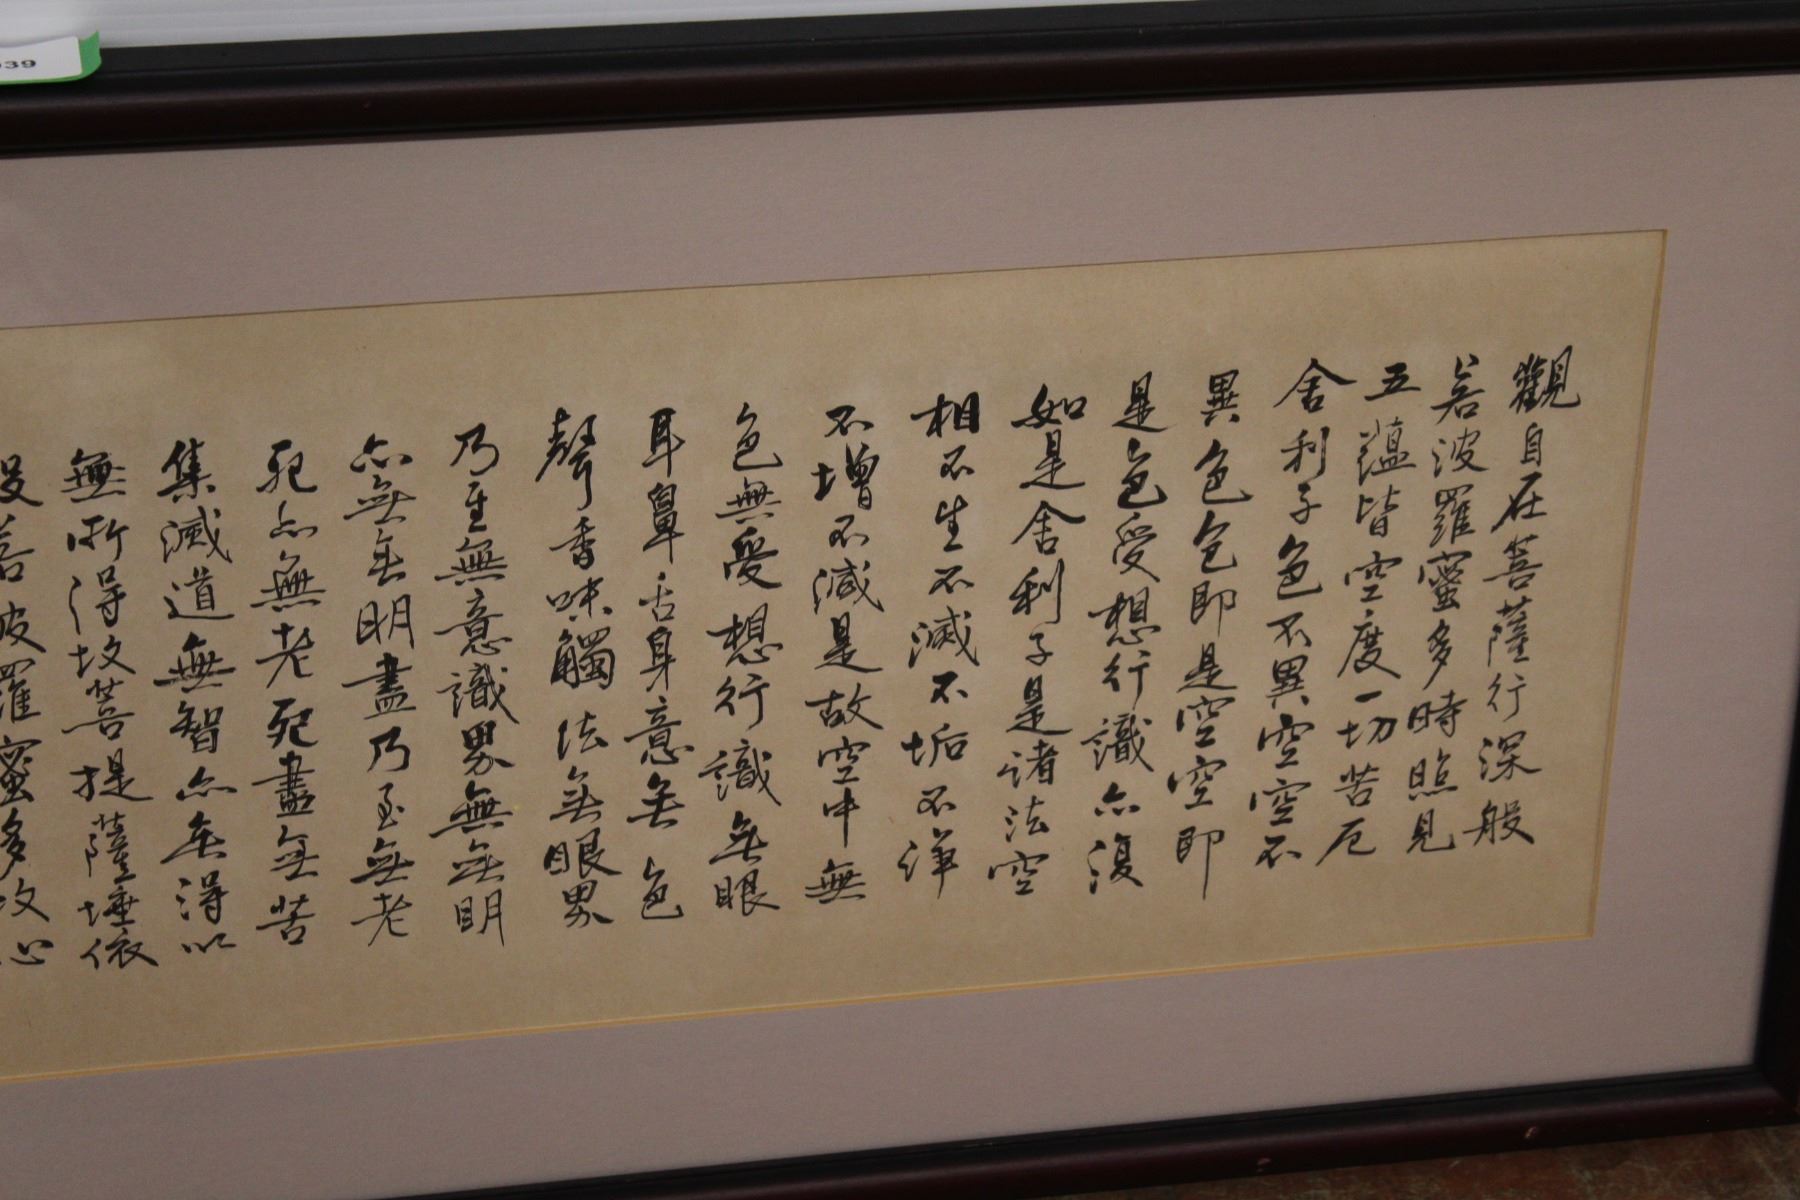 39
觀自在菩薩行深般
若波羅蜜多時照見
五蘊皆空度一切苦厄
舍利子色不異空空不
異色色即是空空即
是色受想行識亦復
如是舍利子是諸法空
相不生不滅不垢不淨
不增不減是故空中無
色無受想行識無眼
耳鼻舌身意無色
聲香味觸法無眼界
乃至無意識界無無明
亦無無明盡乃至無老
死亦無老死盡無苦
集滅道無智亦無得以
無所得故菩提薩埵依
般若波羅蜜多故心